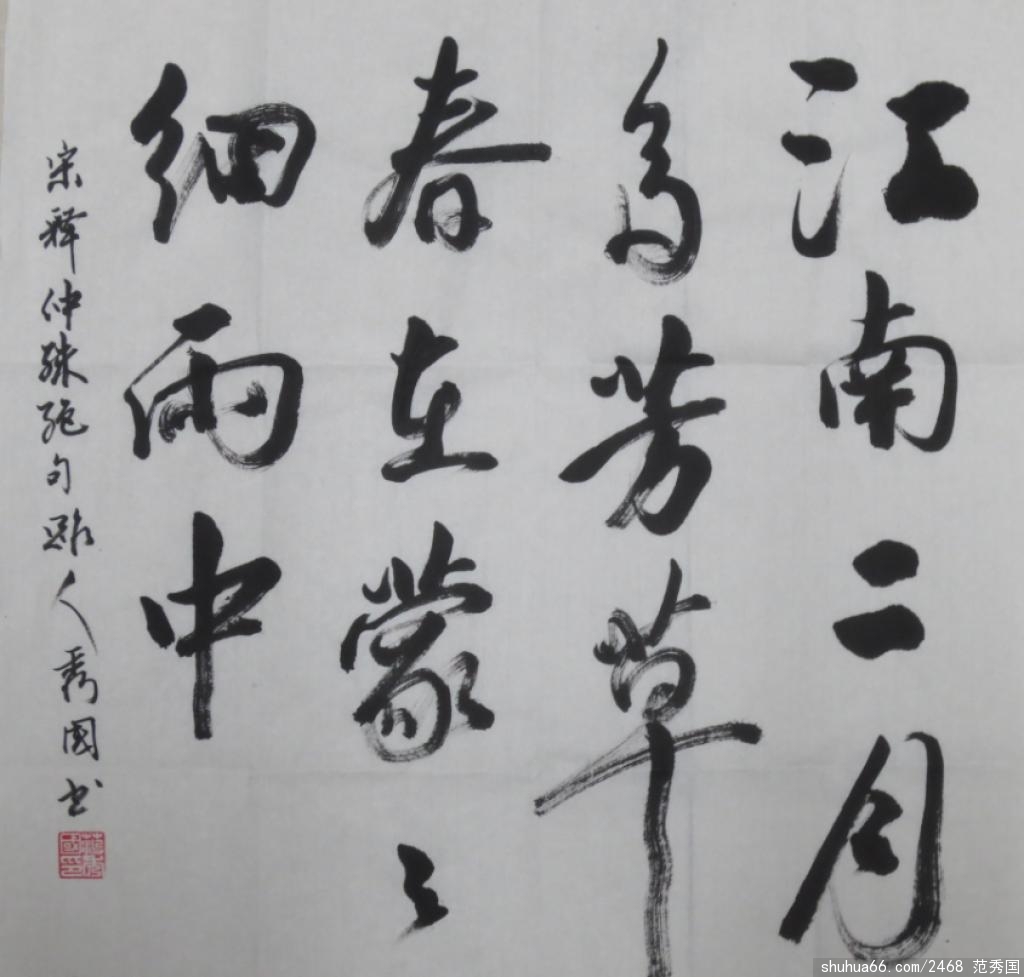 江南二月
多芳草
春在蒙々
细雨中
宋释仲殊绝句 人秀國书
shuhua66.com/2468 范秀国